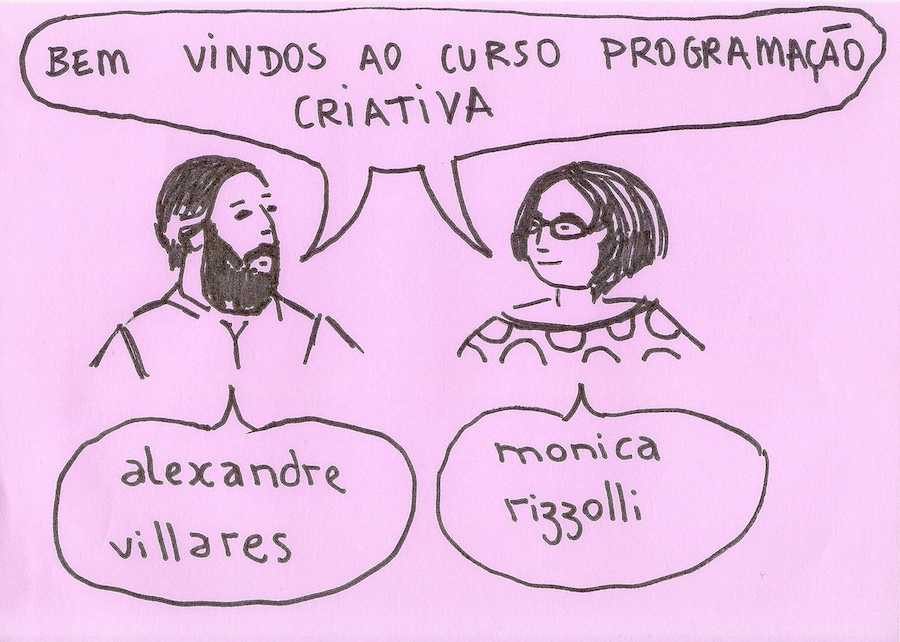 BEM VINDOS AO CURSO PROGRAMAÇÃO
CRIATIVA
alexandre
villares
monica
rizzolli